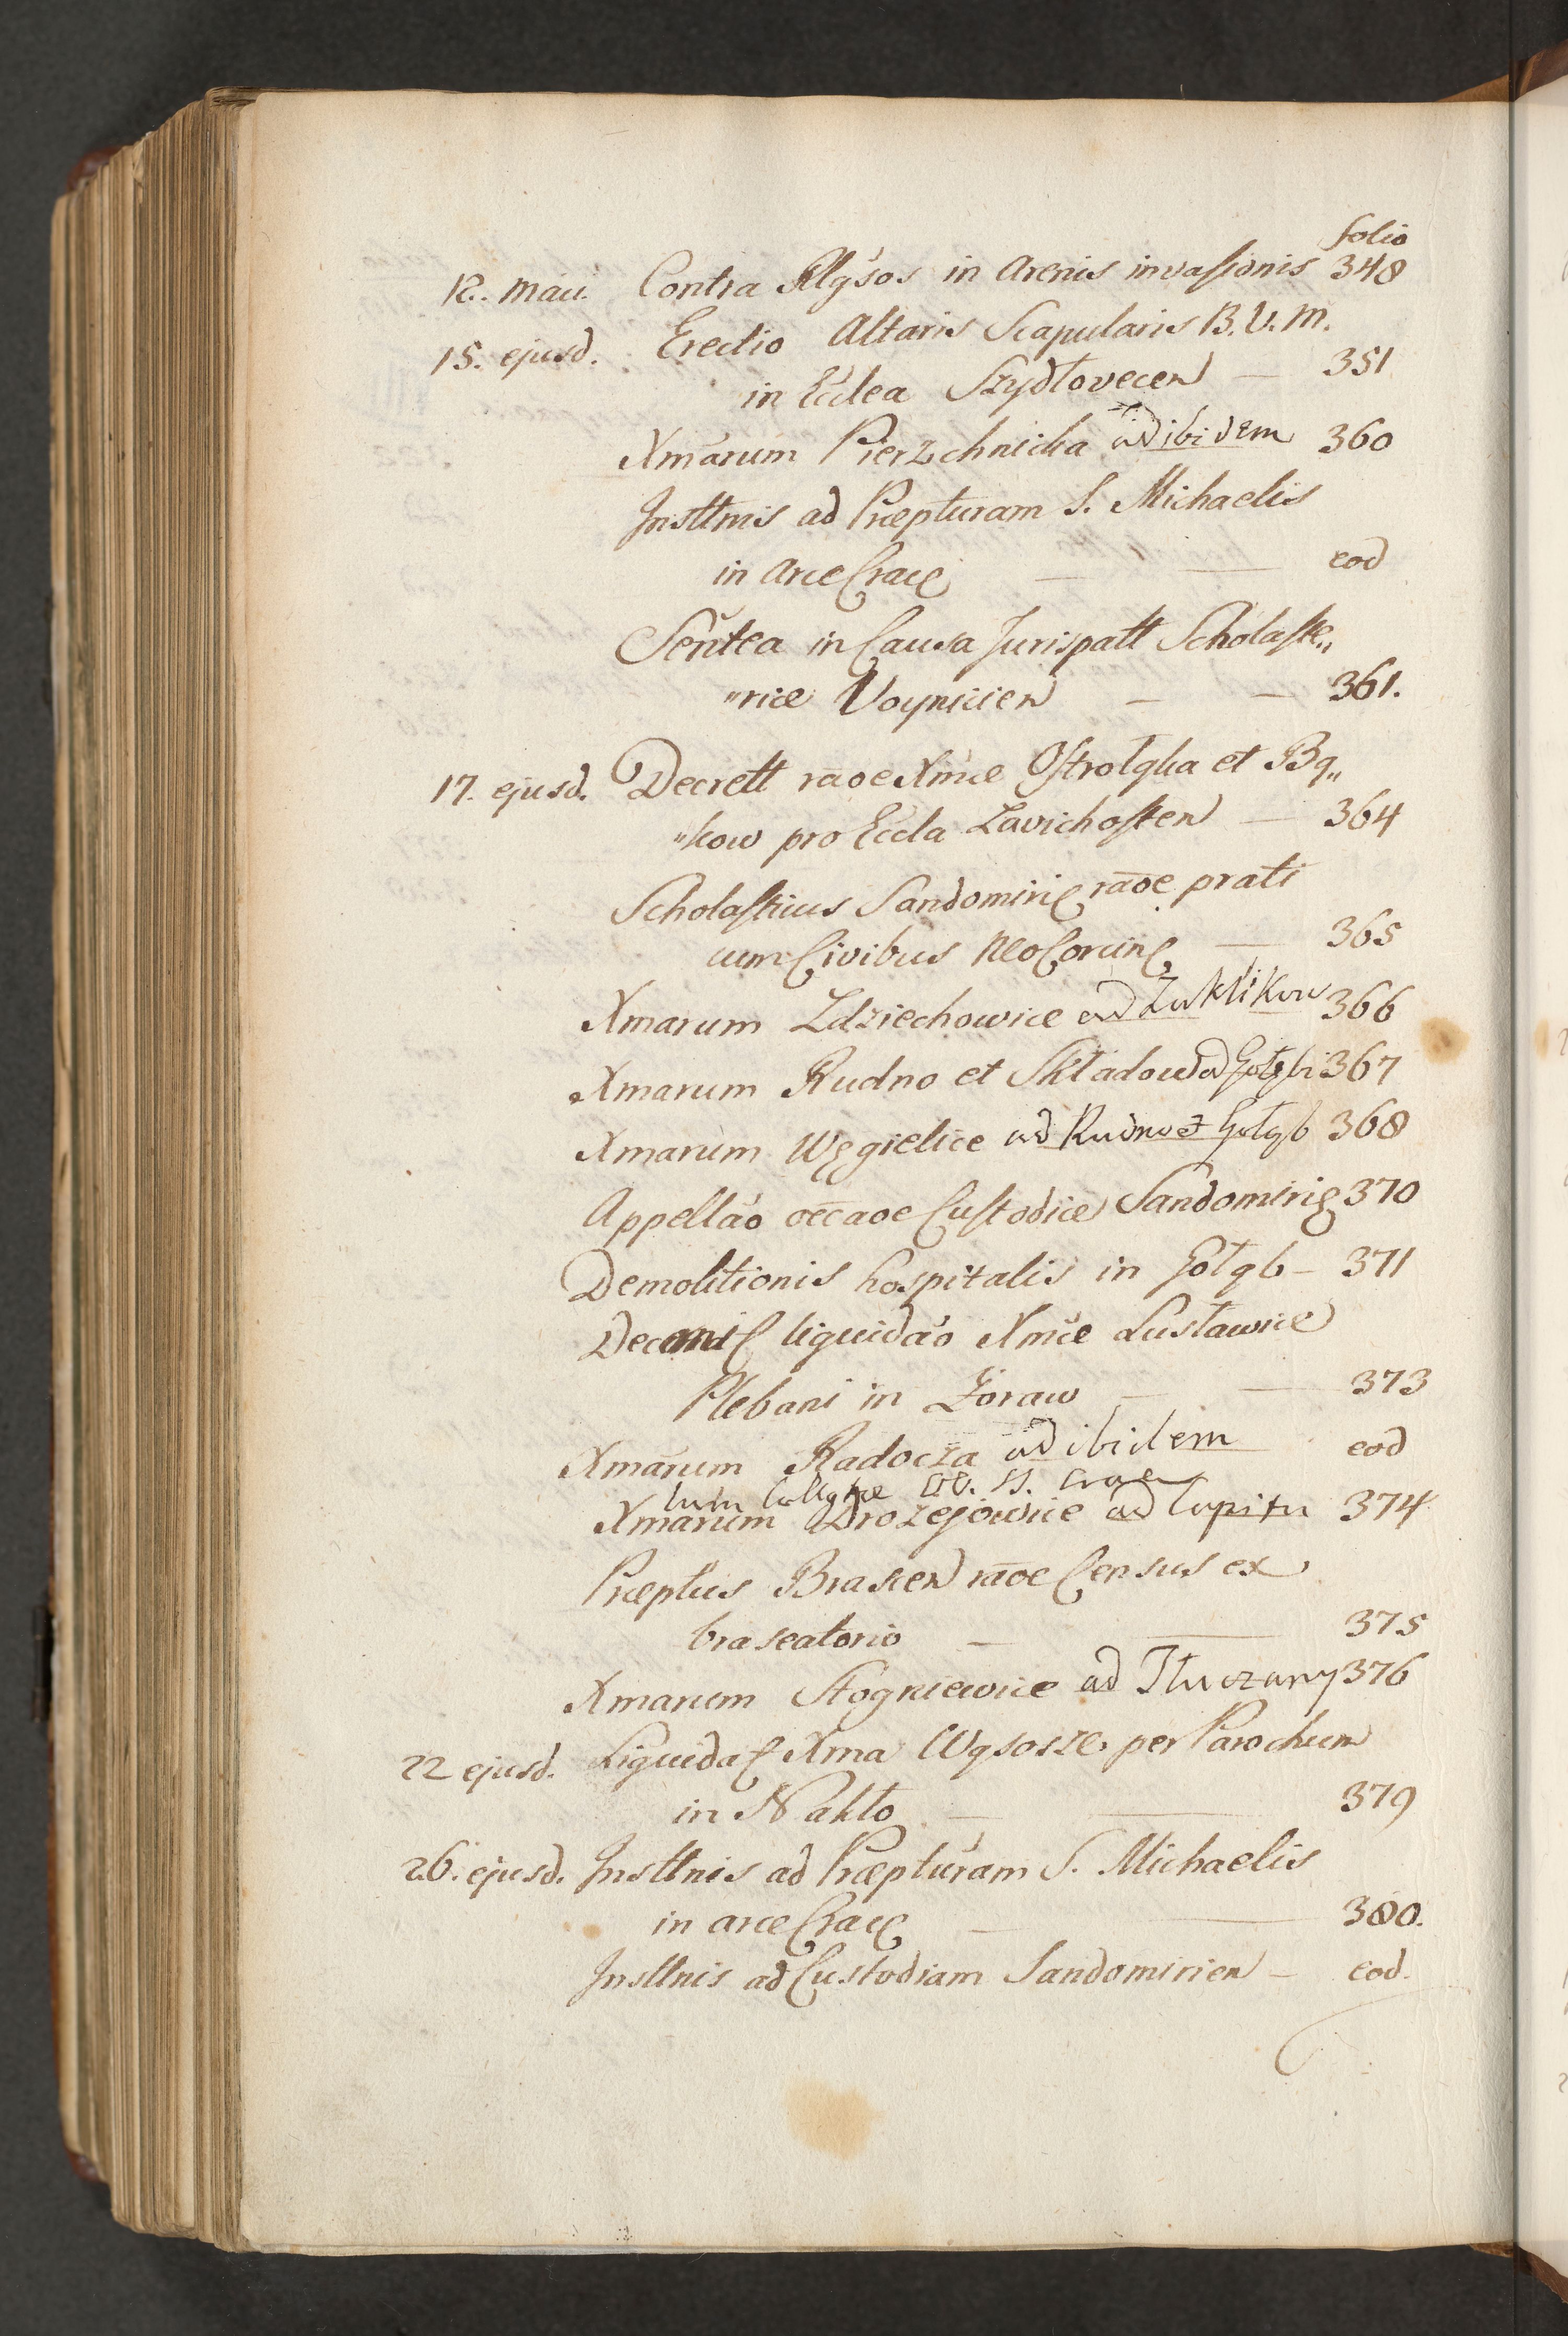 folio
12. Maii. Contra Rlgsos in Arenis invasionis 348
15. ejusd. Erectio Altaris Scapularis B. V. M.
in Ecclea Szydłovecen — 351
Xmarum Pierzchnicka ad ibidem 360
Insttnis ad Præpturam S. Michaelis
in Arce Crac — — eod
Sentea in Causa Jurispatt Scholaste„
„riæ Voynicien — — 361.
17. ejusd. Decrett raoe Xmæ Ostrołęka et Bą„
„kow pro Eccla Zavichosten — 364
Scholasticus Sandomiri raoe prati
cum Civibus Neo Corcin — 365
Xmarum Zdziechowice ad Zaklikow 366
Xmarum Rudno et Składow ad Gołębi 367
Xmarum Węgielice ad Rudno et Gołąb 368
Appellao occaoe Custodiæ Sandomiri 370
Demolitionis hospitalis in Gołąb — 371
liquidao Xmæ Lusławice
Plebani in Zoraw — — 373
Xmarum Radocza ad ibidem eod
Xmarum Drozejowice ad Capitu 374
Præptus Brascen raoe Census ex
braseatorio — — 375
Xmarum Stogniewice ad Tłuczany 376
22 ejusd. Liquida Xma Wąsosze per Parochum
in Nakło — — 379
26. ejusd. Insttnis ad Præpturam S. Michaelis
in arce Crac — — 380.
Insttnis ad Custodiam Sandomirien — eod.